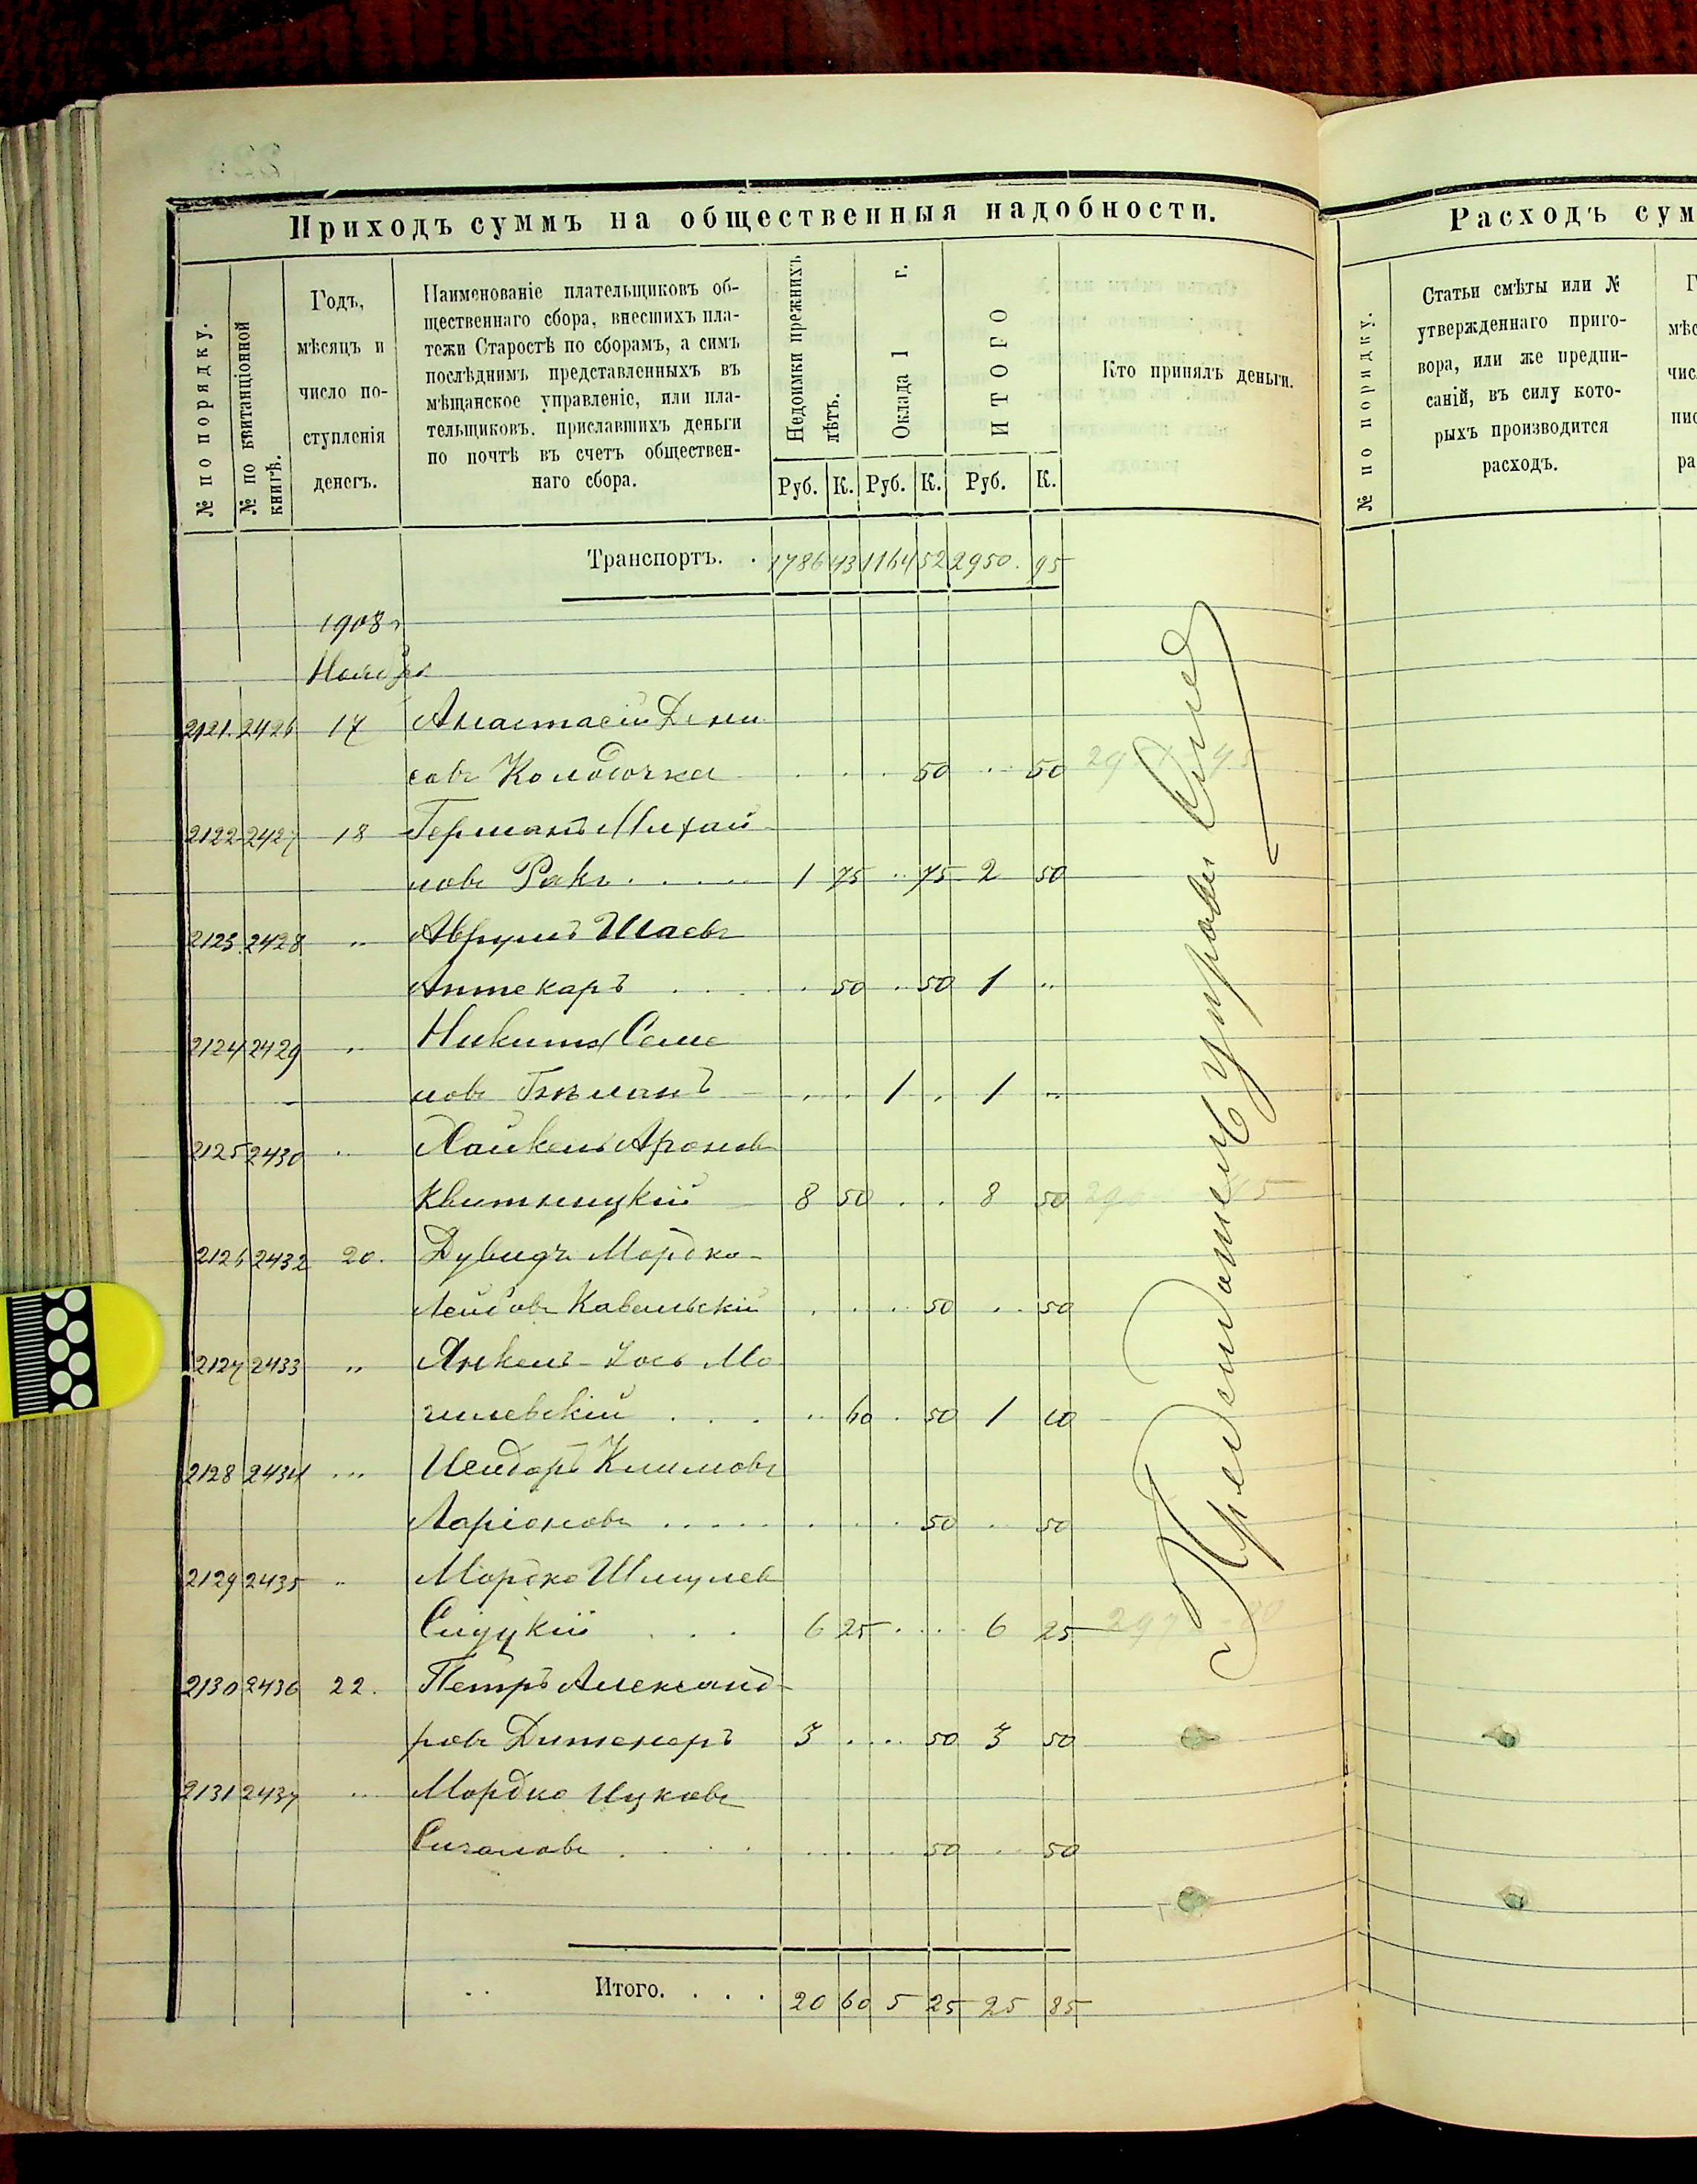 Приходъ суммъ на общественныя надобности.
№ по порядку.
№ по квитанціонной книгѣ.
Годъ,
мѣсяцъ и
число по-
ступленія
денегъ.
Наименованіе плательщиковъ об-
щественнаго сбора, внесшихъ пла-
тежи Старостѣ по сборамъ, а симъ
послѣднимъ представленныхъ въ
мѣщанское управленіе, или пла-
тельщиковъ. приславшихъ деньги
по почтѣ въ счетъ обществен-
наго сбора.
Недоимки прежнихъ лѣтъ.
Оклада 1 г.
ИТОГО
Кто принялъ деньги.
Руб. К. Руб. К. Руб. К.
Транспортъ. . 1786 43 1164 52 2950. 95
1908 г
Ноября
2121. 2426 17 Анастасій Дени
совъ Колодочка . . . . 50 .. 50
2122 2427 18 Германъ Михай
ловъ Ракъ . . . . 1 75 .. 75 2 50
2123. 2428 .. Аврумъ Шаевъ
Аптекаръ . . . . 50 . 50 1 ..
2124 2429 .. Никита Семе
новъ . . . 1 . 1 ..
2125 2430 .. Хайкель Ароновъ
Квитницкій 8 50 . . 8 50
2126 2432 20. Дувидъ Мордко-
Лейбовъ Кавальскій . . . . 50 . . 50
2127 2433 .. Янкель-Іось Мо
гилевскій . . . .. 60 . 50 1 10
2128 2434 ... Исидоръ Климовъ
Ларіоновъ . . . . . . . 50 . 50
2129 2435 .. Мордко Шмулев
Слуцкій . . . 6 25 . . . 6 25
2130 2436 22. Петръ Александ-
ровъ 3 . . . 50 3 50
2131 2437 .. Мордко Ицковъ
Сигаловъ . . . . . . . 50 . . 50
Итого. . . . 20 60 5 25 25 85
Расходъ сум
№ по порядку.
Статьи смѣты или №
утвержденнаго приго-
вора, или же предпи-
саній, въ силу кото-
рыхъ производится
расходъ.
Г
мѣс
чис
пис
ра